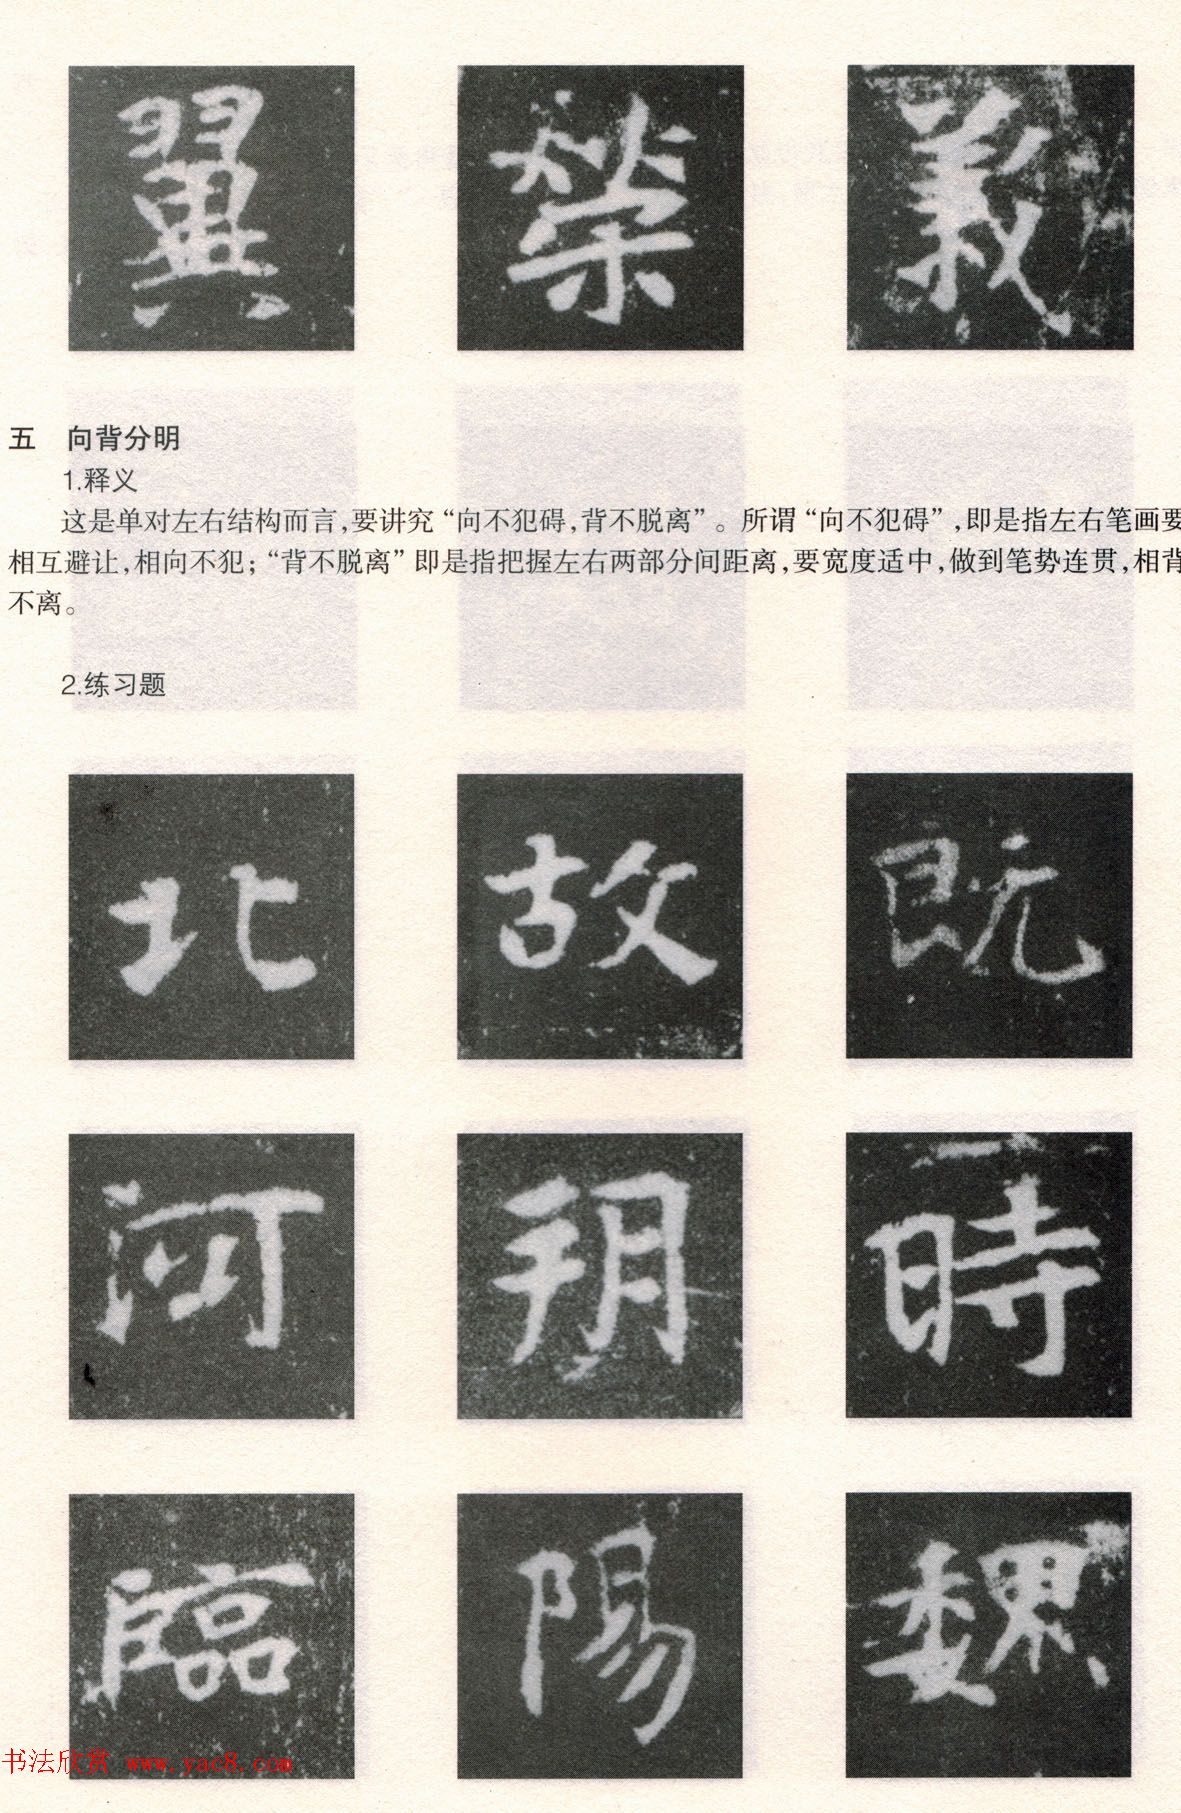 翼 榮 義
五 向背分明
1.释义
这是单对左右结构而言,要讲究“向不犯碍,背不脱离”。所谓“向不犯碍”,即是指左右笔画要
相互避让,相向不犯;“背不脱离”即是指把握左右两部分间距离,要宽度适中,做到笔势连贯,相背
不离。
2.练习题
北 故 既
河 朔 時
臨 陽 魏
书法欣赏 www.yac8.com